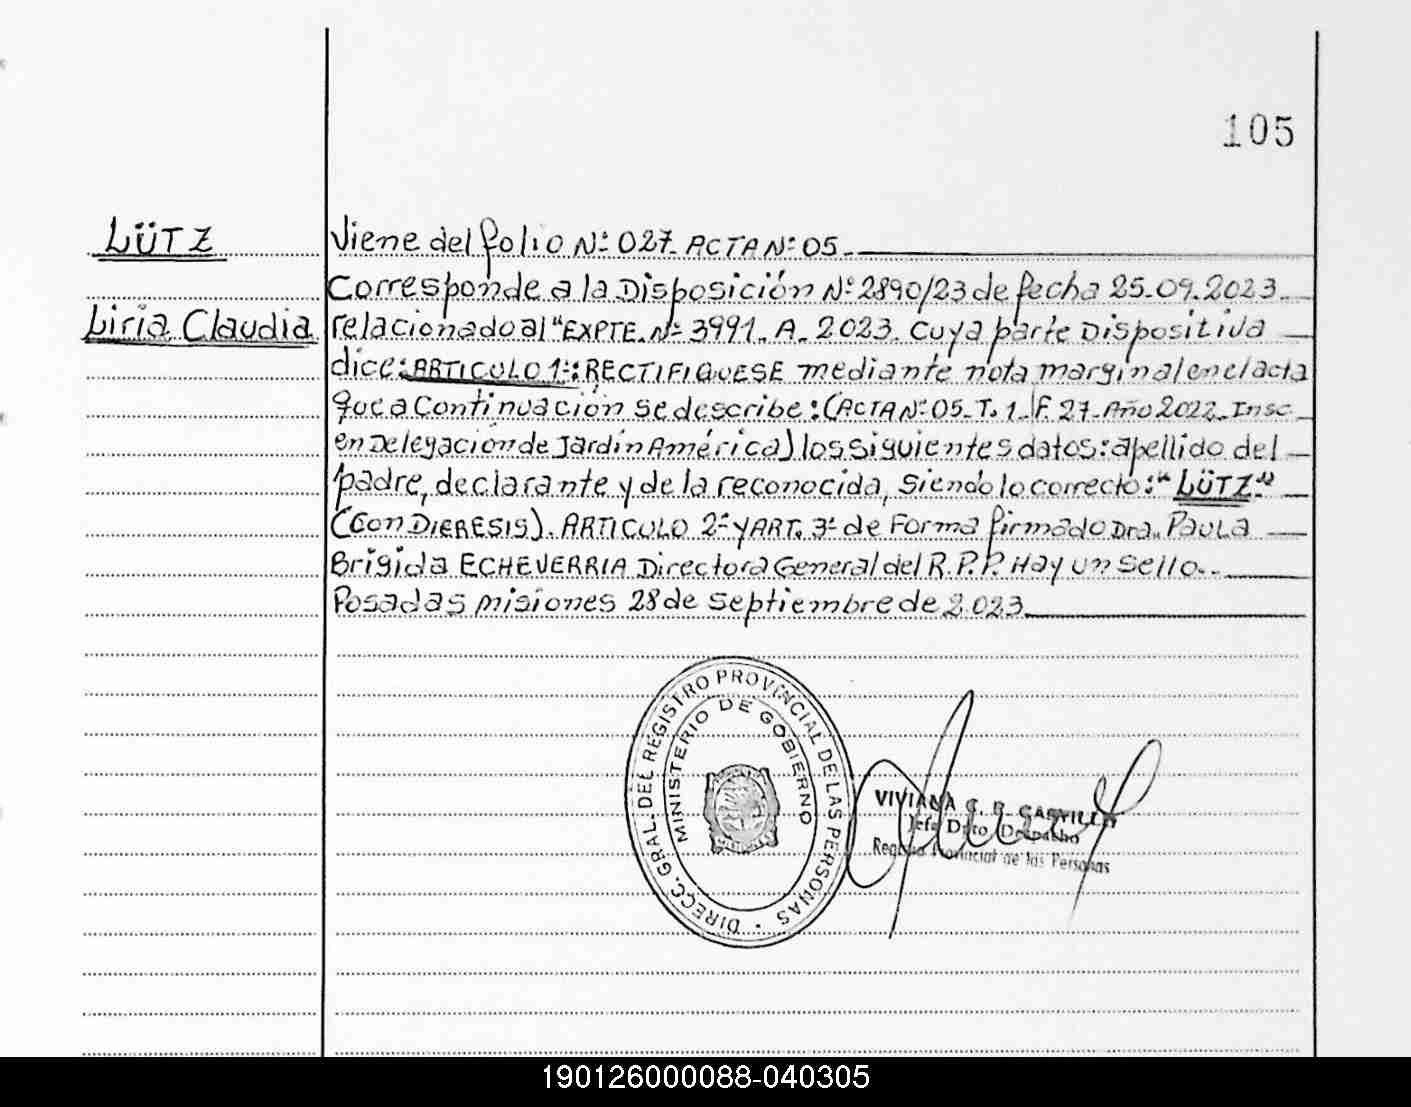 105
LÜTZ
Liria Claudia
Viene del folio Nº 027. ACTA Nº 05.
Corresponde a la Disposición Nº 2890/23 de fecha 25.09.2023
relacionado al "EXPTE. Nº 3991. A. 2023. Cuya parte Dispositiva
dice: ARTICULO 1º: RECTIFIQUESE mediante nota marginal en el acta
que a Continuación se describe: (ACTA Nº 05. T. 1. F. 27. Año 2022. Insc.
en Delegación de Jardín América) los siguientes datos: apellido del
padre, declarante y de la reconocida, siendo lo correcto: "LÜTZ"
(Con DIERESIS). ARTICULO 2º y ART. 3º de Forma firmado Dra. PAULA
Brigida ECHEVERRIA Directora General del R.P.P. Hay un sello.
Posadas misiones 28 de septiembre de 2.023
DIRECC. GRAL. DEL REGISTRO PROVINCIAL DE LAS PERSONAS
MINISTERIO DE GOBIERNO
VIVIANA G. R. CASTILLO
Jefe Dpto Despacho
Registro Provincial de las Personas
190126000088-040305